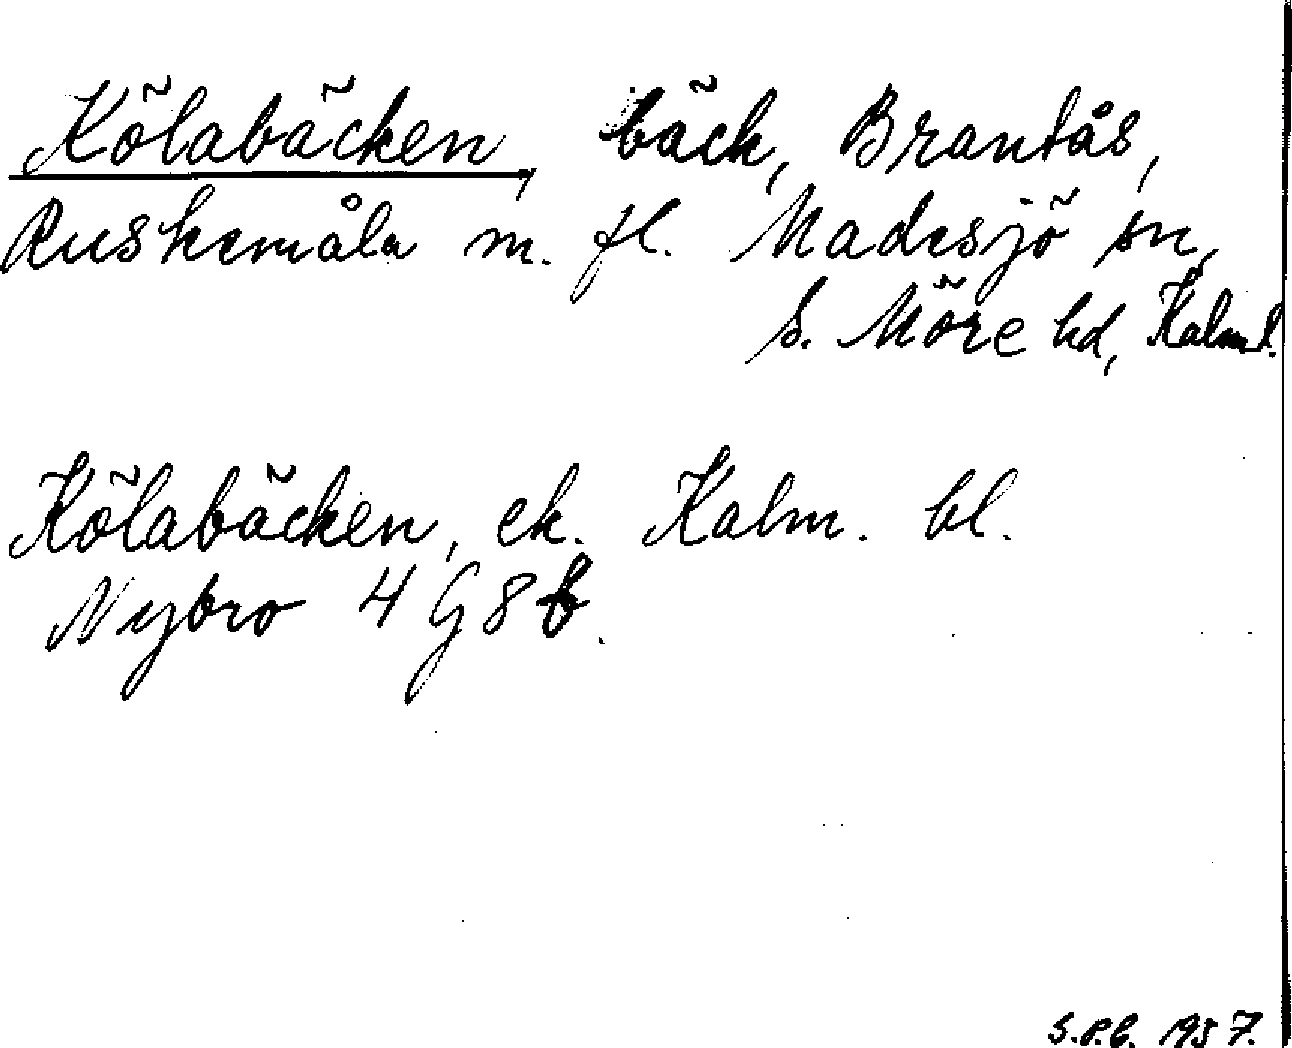 Kölabäcken, bäck, Brantås,
Ruskemåla m. fl. Madesjö sn,
S. Möre hd, Kalm l.
Kölabäcken, ek. Kalm. bl.
Nybro 4 G 8 b.
S.P.B. 1957.